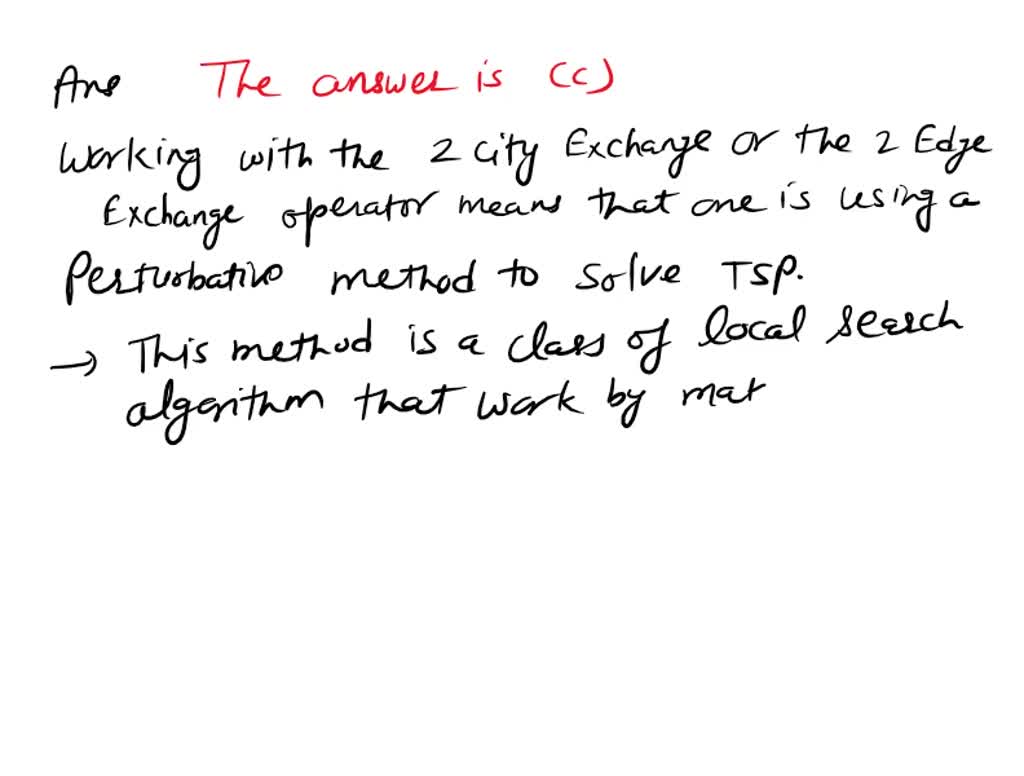 Ans The answer is (c)
Working with the 2 city Exchange or the 2 Edge
Exchange operator means that one is using a
Perturbative method to solve TSP.
→ This method is a class of local search
algorithm that work by mat